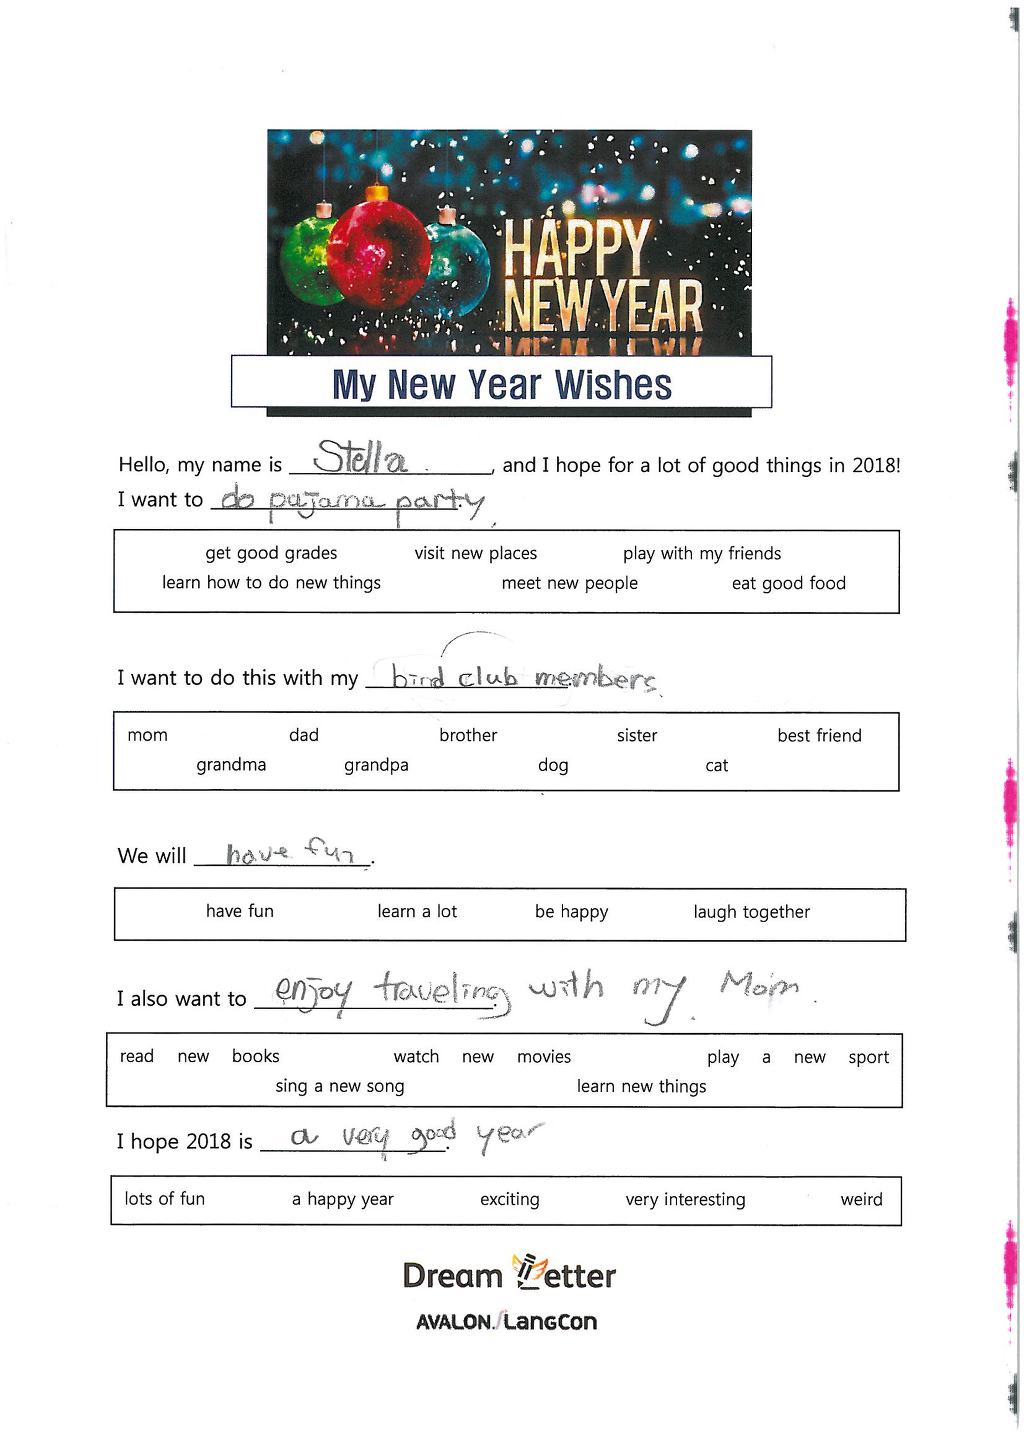 HAPPY
NEW YEAR
My New Year Wishes
Hello, my name is Stella, and I hope for a lot of good things in 2018!
I want to do pajama party.
get good grades visit new places play with my friends
learn how to do new things meet new people eat good food
I want to do this with my bird club members.
mom dad brother sister best friend
grandma grandpa dog cat
We will have fun.
have fun learn a lot be happy laugh together
I also want to enjoy traveling with my Mom.
read new books watch new movies play a new sport
sing a new song learn new things
I hope 2018 is a very good year
lots of fun a happy year exciting very interesting weird
Dream Letter
AVALON LangCon